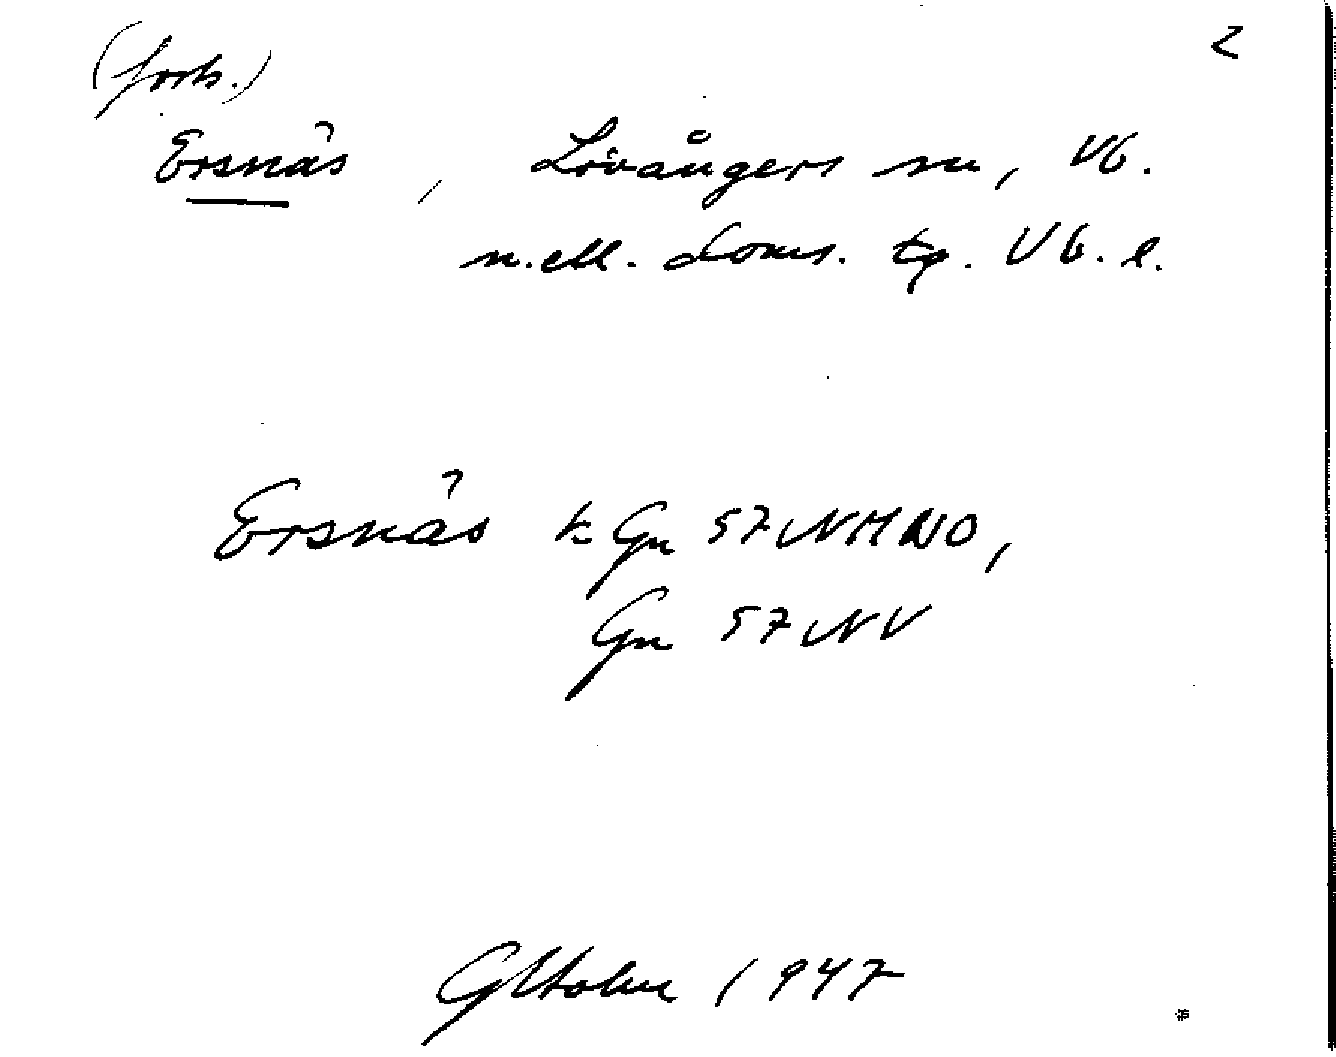 2
(forts.)
Ersnäs, Lövångers sn, Vb.
n. ell. doms. tg. Vb. l.
Ersnäs k Gn 57 NMNO,
Gn 57 NV
GHolm 1947